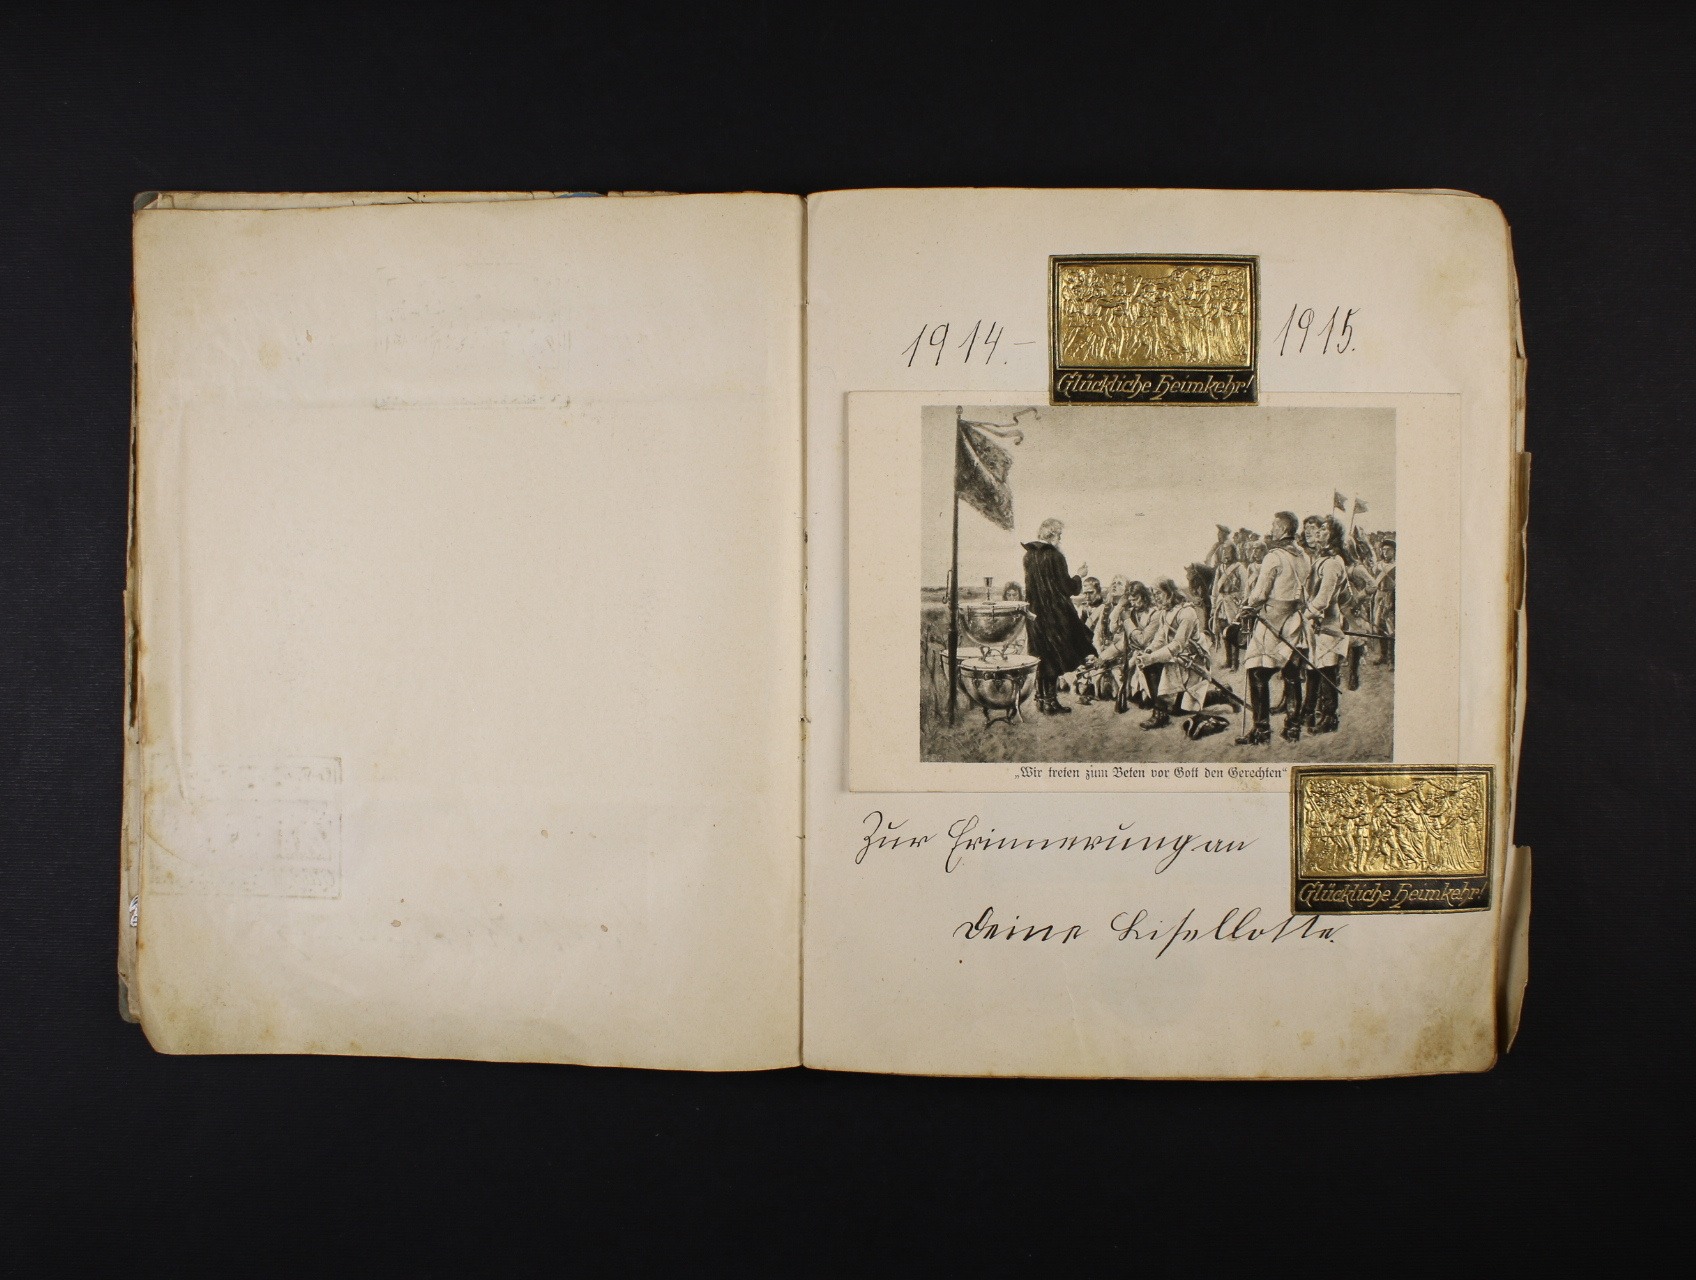 1914.– 1915.
Glückliche Heimkehr!
„Wir treten zum Beten vor Gott den Gerechten“
Zur Erinnerung an
Glückliche Heimkehr!
Deine Lisellotte.